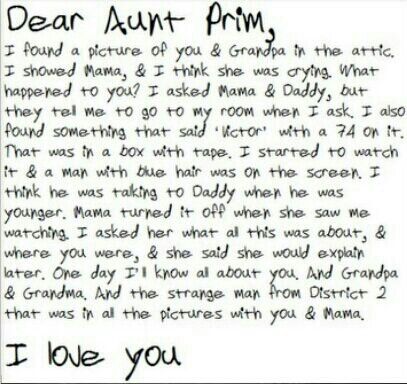 Dear Aunt Prim,
I found a picture of you & Grandpa in the attic.
I showed Mama, & I think she was crying. What
happened to you? I asked Mama & Daddy, but
they tell me to go to my room when I ask. I also
found something that said 'Victor' with a 74 on it.
That was in a box with tape. I started to watch
it & a man with blue hair was on the screen. I
think he was talking to Daddy when he was
younger. Mama turned it off when she saw me
watching. I asked her what all this was about, &
where you were, & she said she would explain
later. One day I'll know all about you. And Grandpa
& Grandma. And the strange man from District 2
that was in all the pictures with you & Mama.
I love you